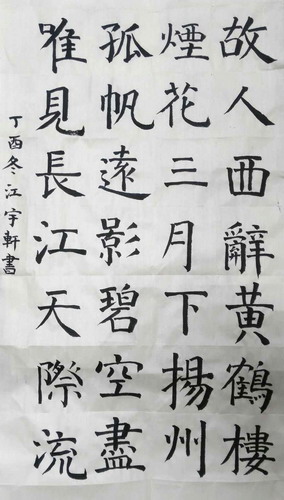 故人西辭黃鶴樓
煙花三月下揚州
孤帆遠影碧空盡
唯見長江天際流
丁酉冬江宇軒書